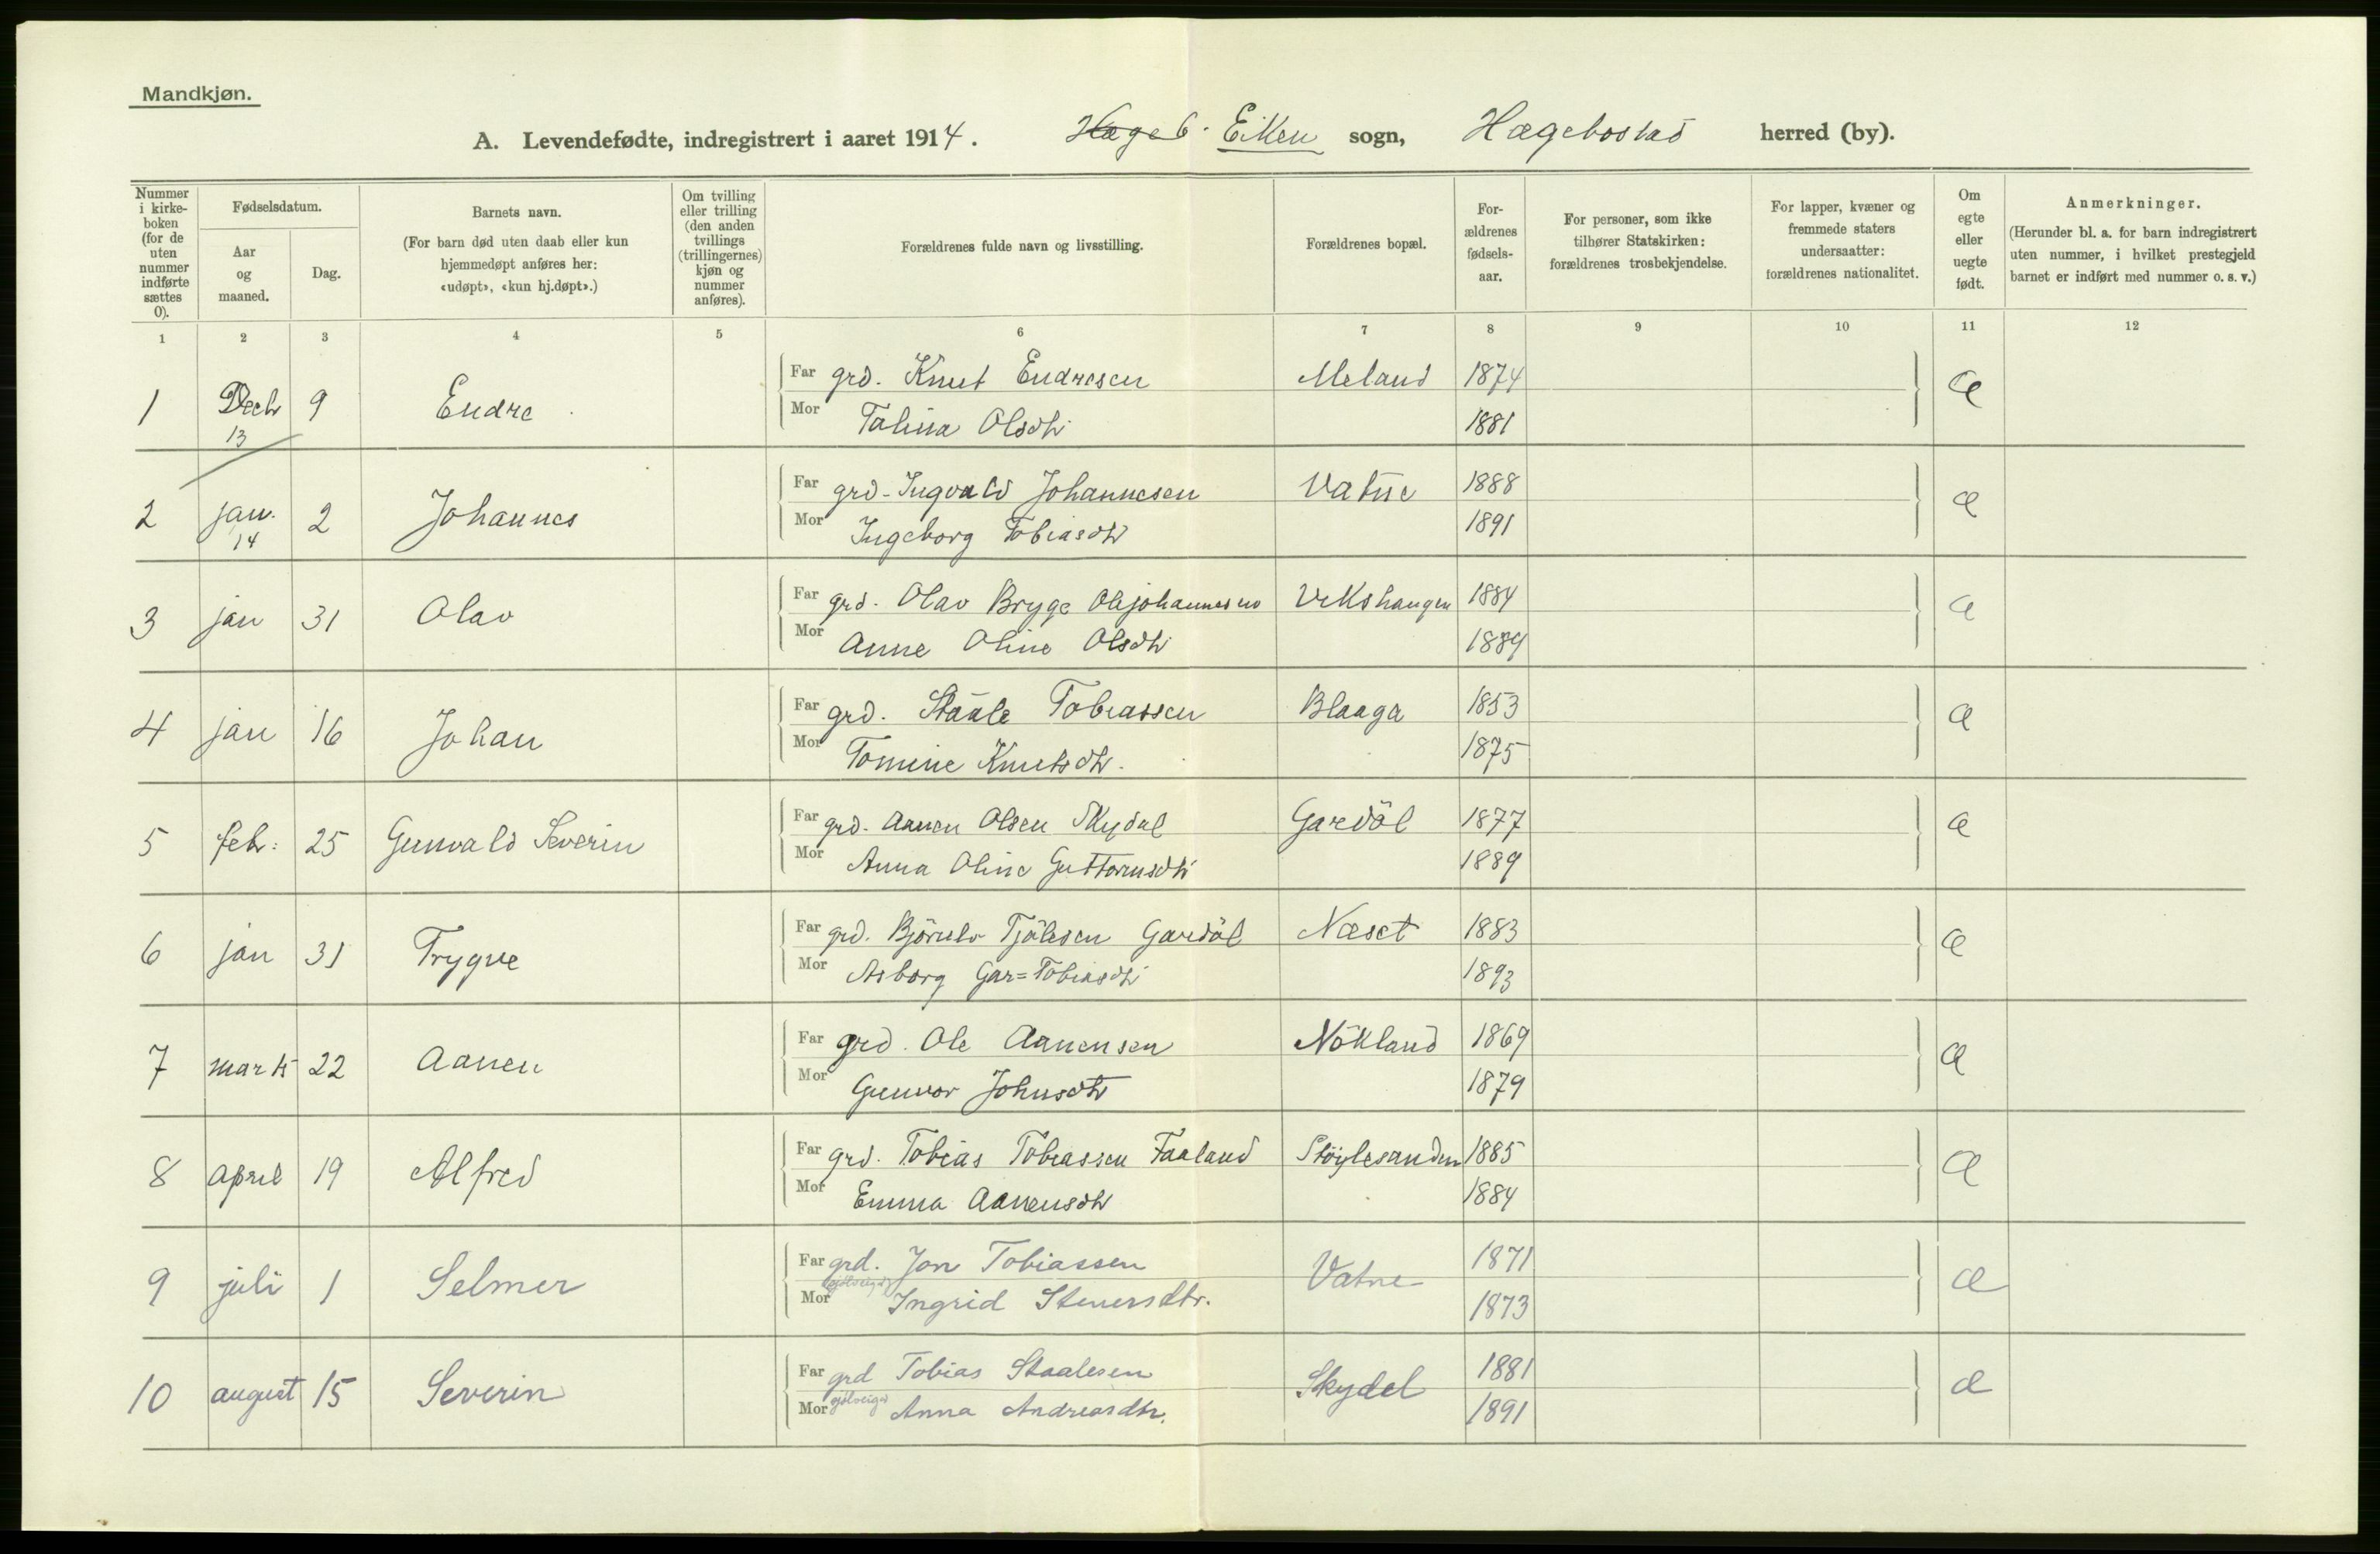 Mandkjøn.
A. Levendefødte, indregistrert i aaret 1914. Hægeb. Eiken sogn, Hægebostad herred (by).
Nummer i kirke-boken (for de uten nummer indførte sættes 0).
Fødselsdatum.
Aar og maaned.
Dag.
Barnets navn.
(For barn død uten daab eller kun hjemmedøpt anføres her: «udøpt», «kun hj.døpt».)
Om tvilling eller trilling (den anden tvillings (trillingernes) kjøn og nummer anføres).
Forældrenes fulde navn og livsstilling.
Forældrenes bopæl.
For-ældrenes fødsels-aar.
For personer, som ikke tilhører Statskirken: forældrenes trosbekjendelse.
For lapper, kvæner og fremmede staters undersaatter: forældrenes nationalitet.
Om egte eller uegte født.
Anmerkninger.
(Herunder bl. a. for barn indregistrert uten nummer, i hvilket prestegjeld barnet er indført med nummer o. s. v.)
1 2 3 4 5 6 7 8 9 10 11 12
Far grd. Knut Endresen Meland 1874
1 Decbr 13 9 Endre æ
Mor Talina Olsdtr 1881
Far grd. Ingvald Johannesen Vatne 1888
2 jan. 14 2 Johannes æ
Mor Ingeborg Tobiasdtr 1891
Far grd. Olav Brygge Olejohannesen Vrkshaugen 1884
3 jan 31 Olav æ
Mor Anne Oline Olsdtr 1889
Far grd. Ståale Tobiassen Blaaga 1853
4 jan 16 Johan æ
Mor Tomine Knutsdtr. 1875
Far grd. Aanen Olsen Skydal Gardöl 1877
5 febr: 25 Gunvald Severin æ
Mor Anna Oline Guttormsdtr 1889
Far grd. Björulv Tjölesen Gardöl Næset 1883
6 jan 31 Trygve æ
Mor Asborg Gar=Tobiasdtr 1893
Far grd. Ole Aanensen Nökland 1869
7 marts 22 Aanen æ
Mor Gunvor Johnsdtr 1879
Far grd. Tobias Tobiassen Faaland Stöylesanden 1885
8 april 19 Alfred æ
Mor Emma Aanensdtr 1884
Far grd. Jon Tobiassen 1871
9 juli 1 Selmer Vatne æ
Mor Ingrid Stenersdtr. 1873
Far grd Tobias Staalesen 1881
10 august 15 Severin Skydel æ
Mor Anna Andreasdtr. 1891